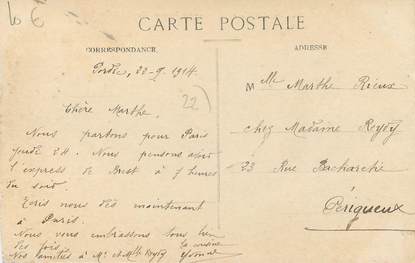 CARTE POSTALE
CORRESPONDANCE
ADRESSE
22-9-1914
22)
Chère Marthe,
Nous partons pour Paris
jeudi 24. Nous pensons avoir
l'express de Brest à 7 heures
du soir.
Ecris nous dès maintenant
à Paris.
Nous vous embrassons tous bien
des fois.
La cousine
Nos amitiés à Mr et Mlle
Yvonne
Mlle Marthe Rieux
chez Madame
23 Rue
à
Périgueux